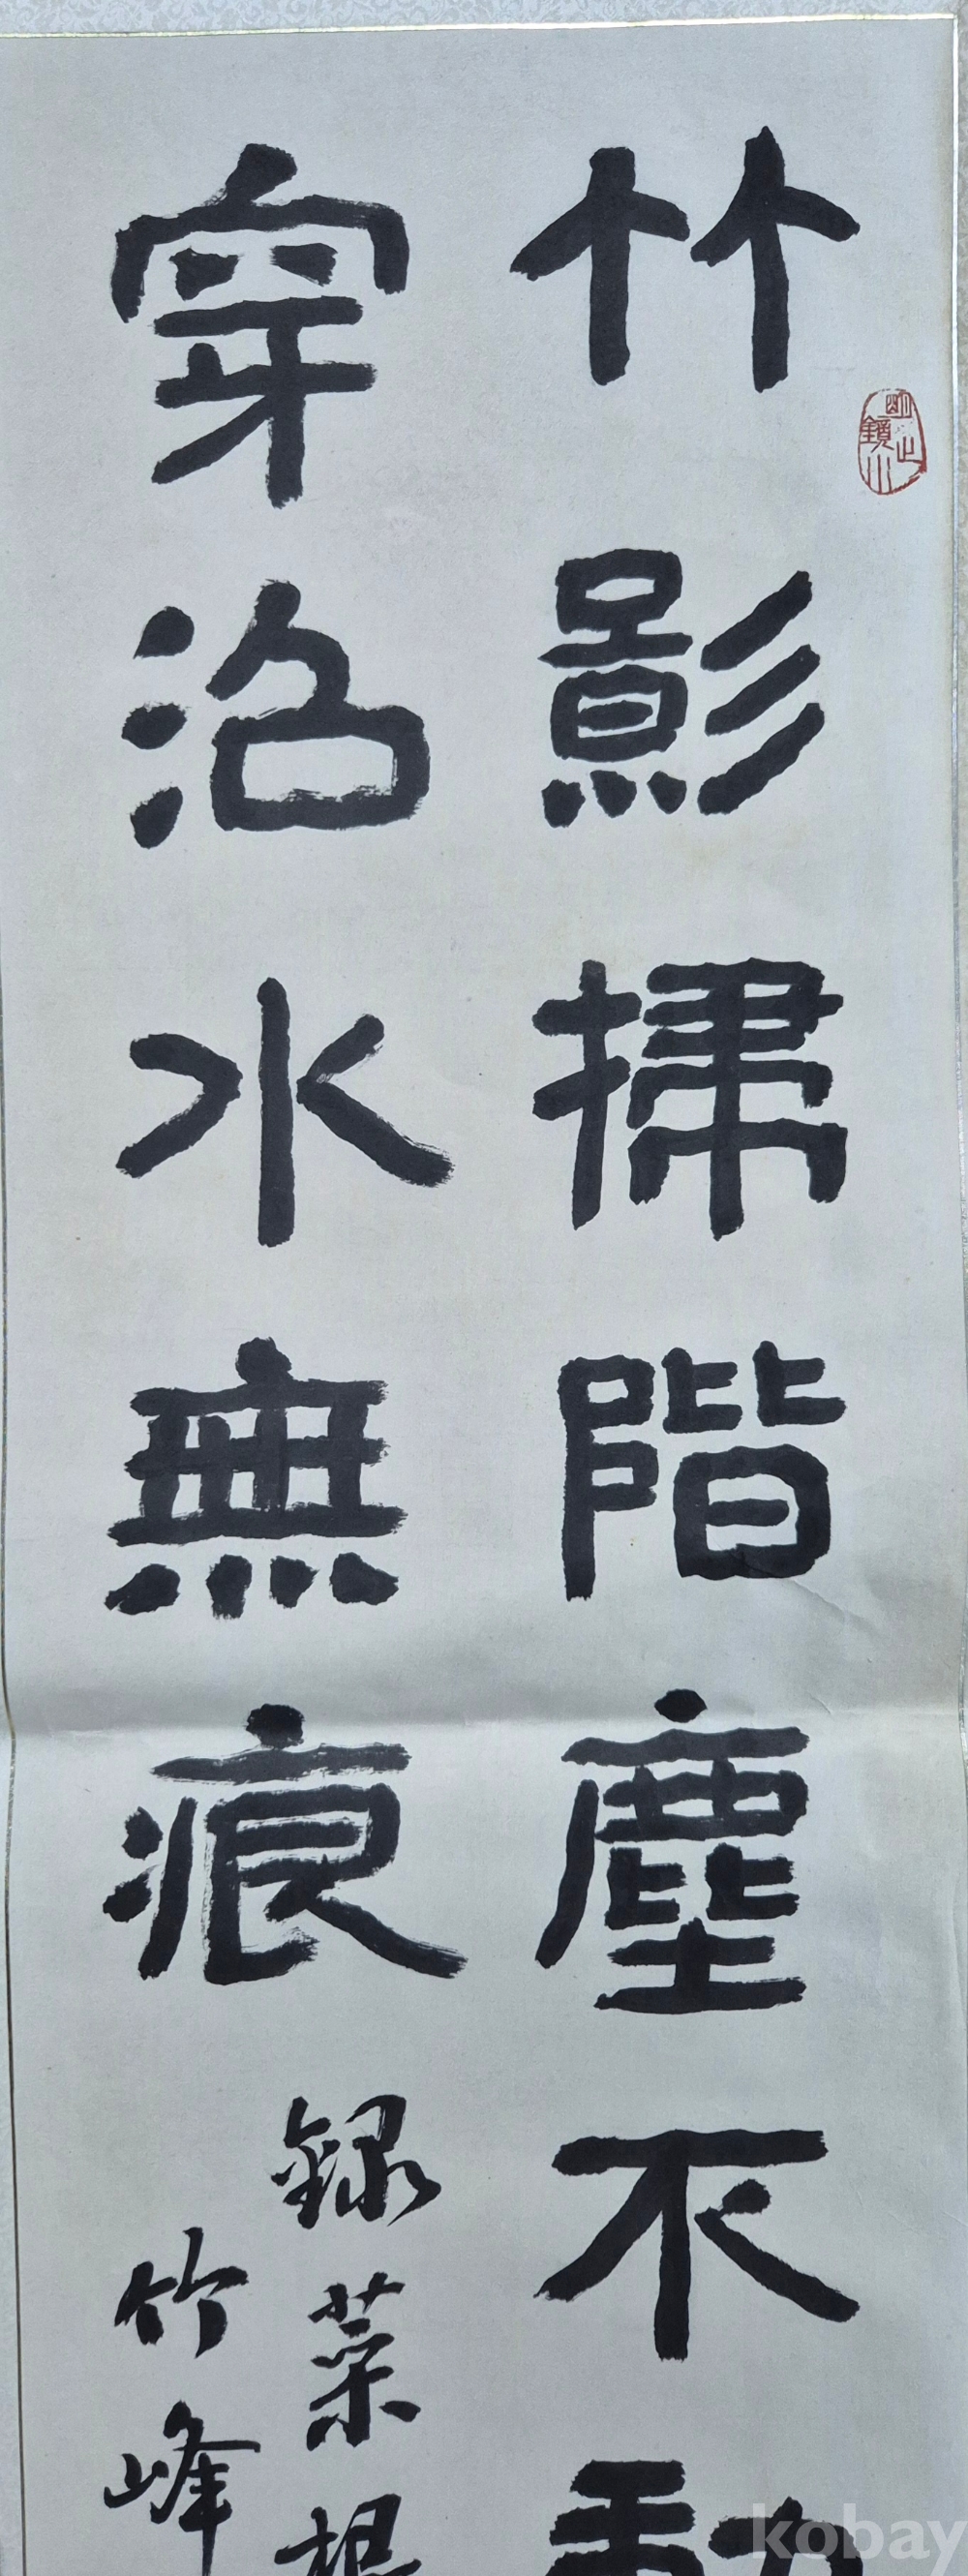 竹影掃階塵不動
穿沼水無痕
錄菜根
竹峰
明鏡止水
kobay